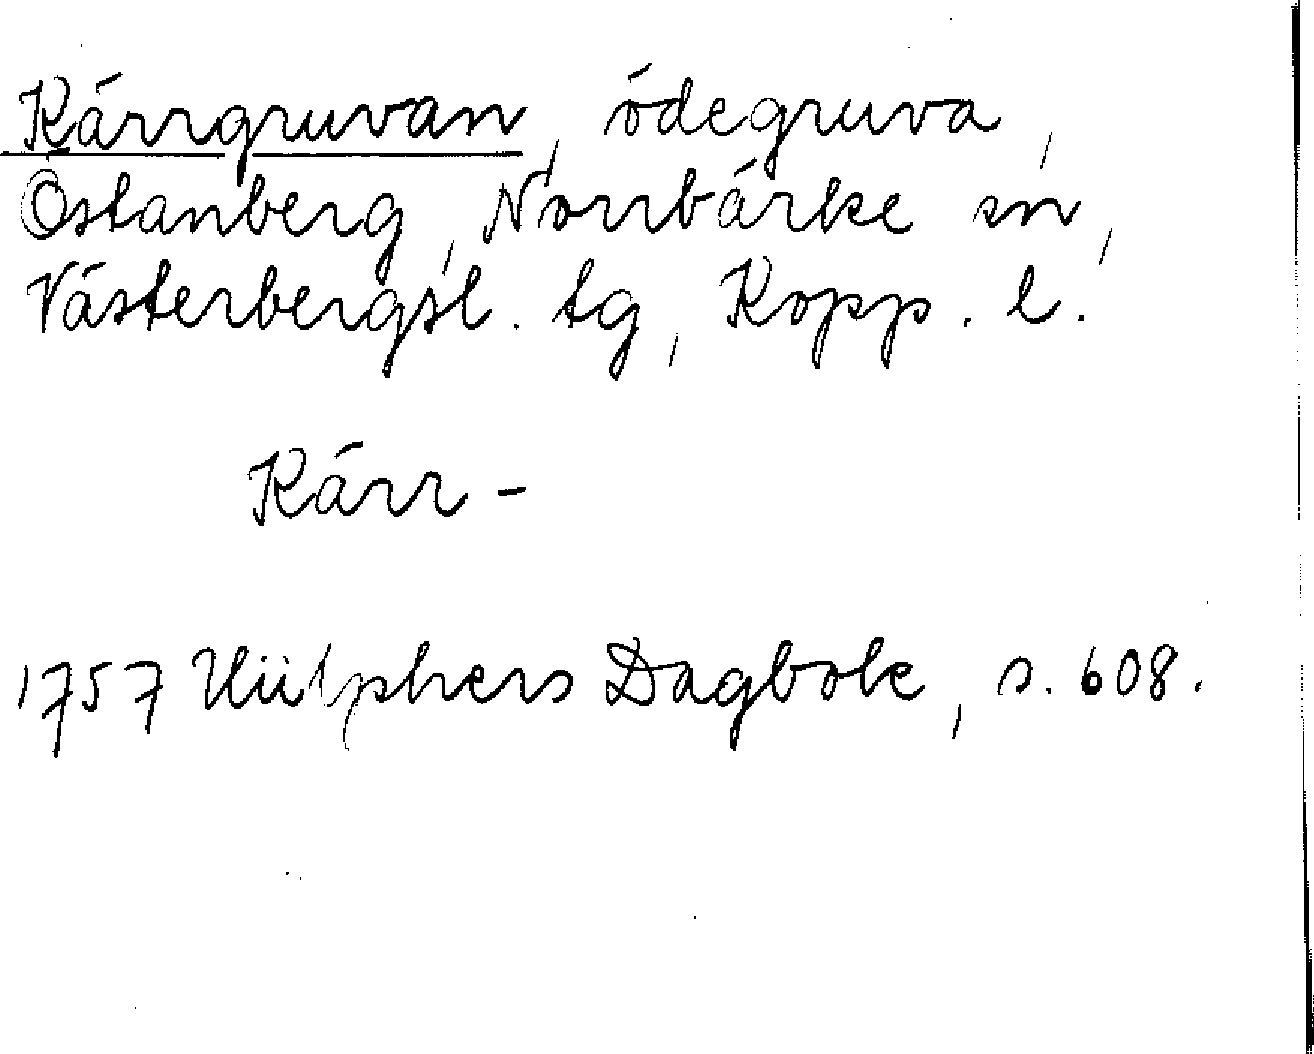 Kärrgruvan, ödegruva,
Östanberg, Norrbärke sn,
Västerbergsl. tg, Kopp. l.
Kärr-
1757 Hülphers Dagbok, s. 608.